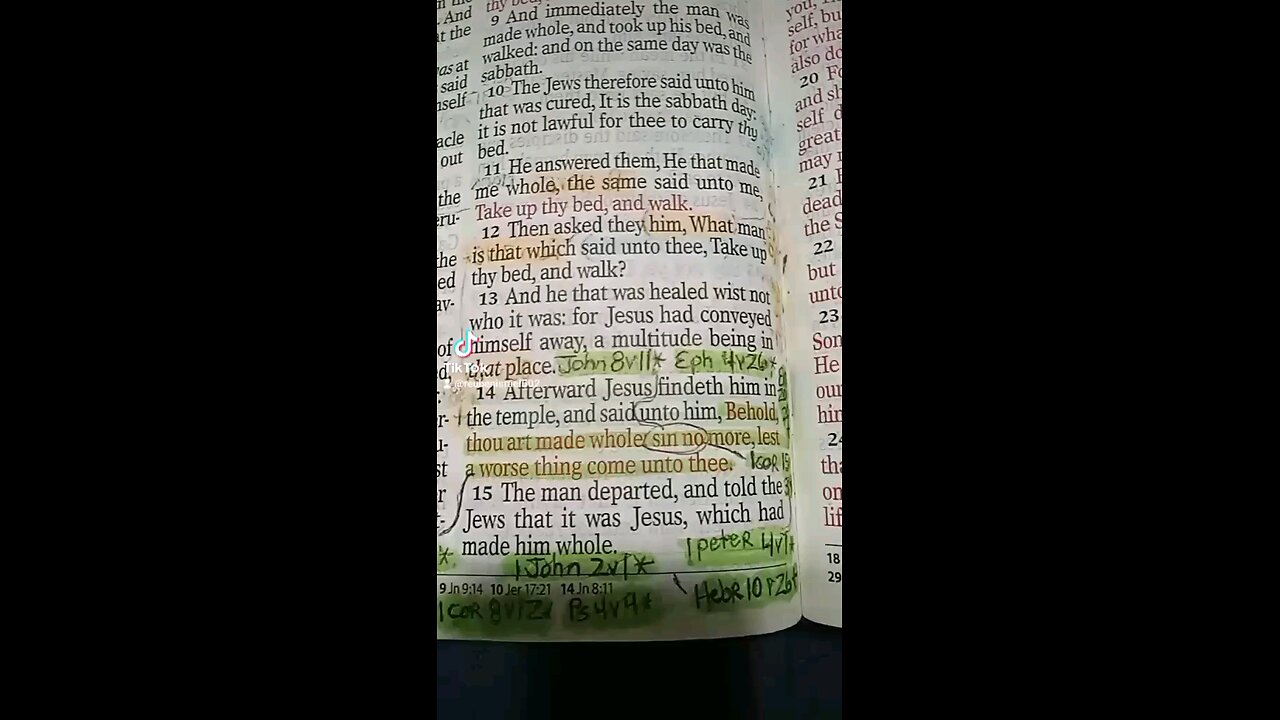 thy bed,
9 And immediately the man was
made whole, and took up his bed, and
walked: and on the same day was the
sabbath.
10 The Jews therefore said unto him
that was cured, It is the sabbath day:
it is not lawful for thee to carry thy
bed.
11 He answered them, He that made
me whole, the same said unto me,
Take up thy bed, and walk.
12 Then asked they him, What man
is that which said unto thee, Take up
thy bed, and walk?
13 And he that was healed wist not
who it was: for Jesus had conveyed
himself away, a multitude being in
that place. John 8v11* Eph 4v26*
14 Afterward Jesus findeth him in
the temple, and said unto him, Behold,
thou art made whole: sin no more, lest
a worse thing come unto thee. 1COR 15
15 The man departed, and told the
Jews that it was Jesus, which had
made him whole.
1 peteR 4v1*
1 John 2v1*
9 Jn 9:14 10 Jer 17:21 14 Jn 8:11
HebR 10v26*
1 COR 8v12* Ps 4v4*
And
at the
was at
said
out
the
of
you,
self, bu
for wha
also do
20
and sh
self d
great
may
21
dead
the S
22
but
unto
23
Son
He
our
him
24
tha
on
lif
18
29
TikTok